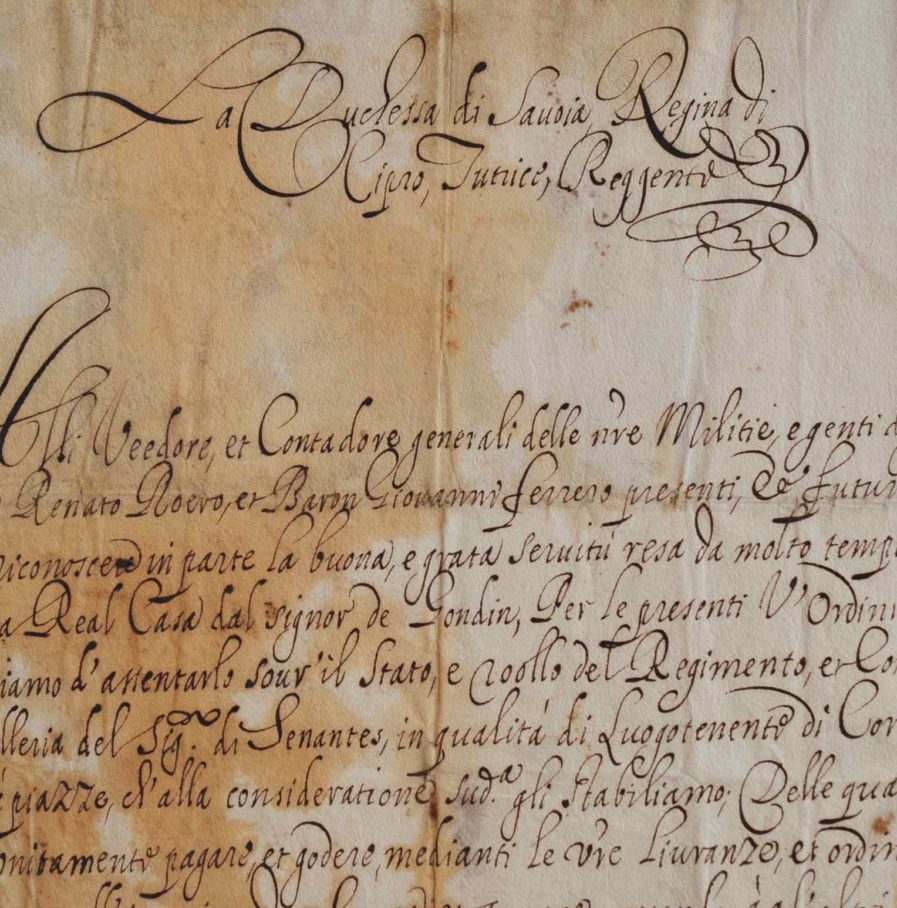 La Duchessa di Savoia, Regina di
Cipro, Tutrice, Reggente
Alli Veedore, et Contadore generali delle nre Militie, e genti d
Renato Roero, et Baron Giovanni ferrero presenti, et futur
riconoscere in parte la buona, e grata servitù resa da molto temp
a Real Casa dal signor de Gondin, Per le presenti V'Ordin
iamo d'assentarlo sour'il Stato, e roollo del Regimento, et Co
lleria del Sig.r di Senantes, in qualità di Luogotenente di Cor
piazze, ch'alla consideratione sud.a gli stabiliamo; Delle qua
onitamente pagare, et godere, medianti le vre livranze, et ordin